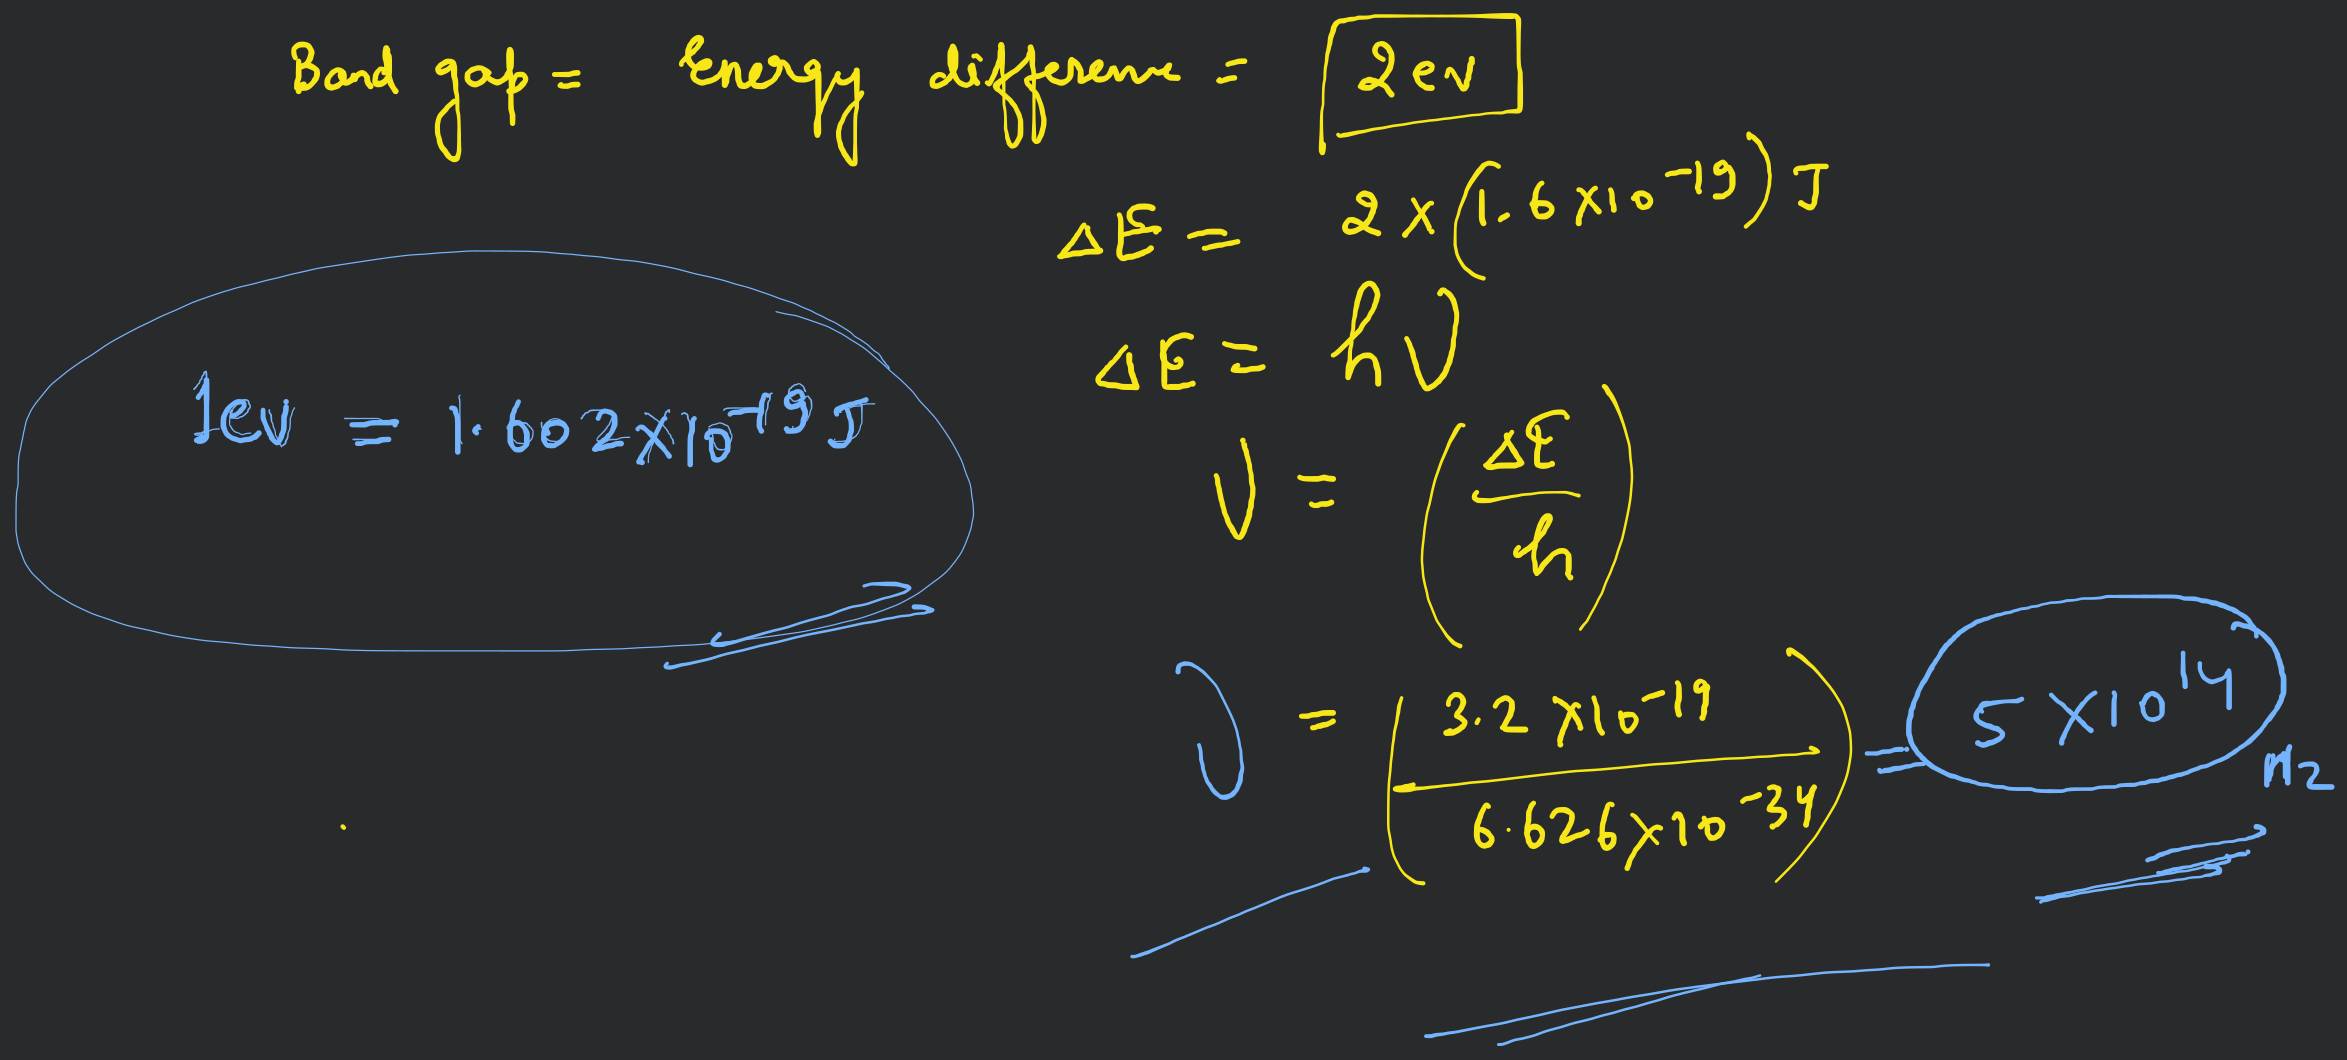 Band gap = Energy difference = 2 ev
ΔE = 2 × (1.6 × 10⁻¹⁹) J
ΔE = hν
1ev = 1.602 × 10⁻¹⁹ J
ν = (ΔE / h)
ν = (3.2 × 10⁻¹⁹ / 6.626 × 10⁻³⁴) = 5 × 10¹⁴ Hz